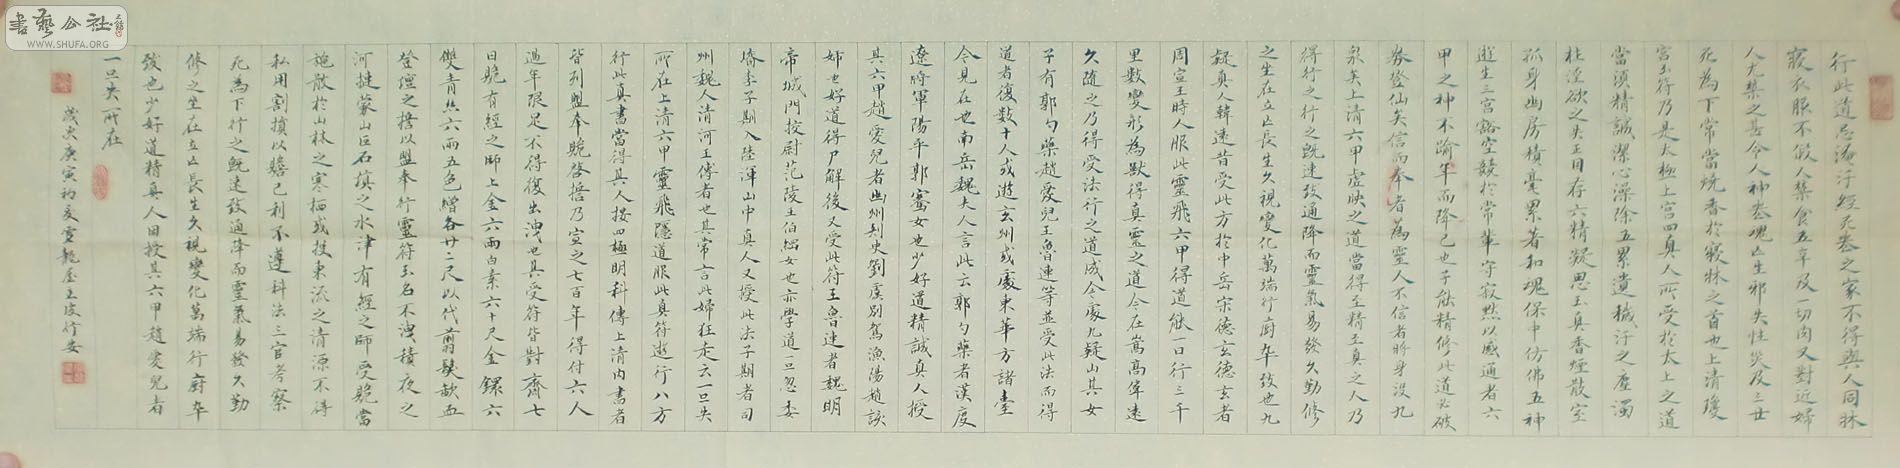 書藝公社
WWW.SHUFA.ORG
行此道忌淹汙經死喪之家不得與人同牀
寢衣服不假人禁食五辛及一切肉又對近婦
人尤禁之甚令人神喪魂亡生邪失性災及三世
死為下常當燒香於寢牀之首也上清瓊
宮玉符乃是太極上宮四真人所受於太上之道
當須精誠潔心澡除五累遺穢汙之塵濁
杜淫欲之失正目存六精凝思玉真香煙散室
孤身幽房積毫累著和魂保中仿佛五神
遊生三宮豁空競於常輩守寂默以感通者六
甲之神不踰年而降己也子能精修此道必破
券登仙矣信而奉者為靈人不信者將身沒九
泉矣上清六甲虛映之道當得至精至真之人乃
得行之行之既速致通降而靈氣易發久勤修
之坐在立亡長生久視變化萬端行廚卒致也九
疑真人韓遠昔受此方於中岳宋德玄德玄者
周宣王時人服此靈飛六甲得道能一日行三千
里數變形為獸得真靈之道今在嵩高偉遠
久隨之乃得受法行之道成今處九疑山其女
子有郭勺藥趙愛兒王魯連等並受此法而得
道者復數十人或遊玄州或處東華方諸臺
今見在也南岳魏夫人言此云郭勺藥者漢度
遼將軍陽平郭騫女也少好道精誠真人授
其六甲趙愛兒者幽州刺史劉虞別駕漁陽趙該
姊也好道得尸解後又受此符王魯連者魏明
帝城門校尉范陵王伯綱女也亦學道一旦忽委
壻李子期入陸渾山中真人又授此法子期者司
州魏人清河王傳者也其常言此婦狂走云一旦失
所在上清六甲靈飛隱道服此真符遊行八方
行此真書當得其人按四極明科傳上清內書者
皆列盟奉跪啓誓乃宣之七百年得付六人
過年限足不得復出洩也其受符皆對齋七
日跪有經之師上金六兩白素六十尺金鐶六
雙青絲六兩五色繒各廿二尺以代翦髮歃血
登壇之誓以盟奉行靈符玉名不洩積夜之
河揵蒙山巨石填之水津有經之師受跪當
施散於山林之寒栖或投東流之清源不得
私用割損以贍己利不遵科法三官考察
死為下行之既速致通降而靈氣易發久勤
修之坐在立亡長生久視變化萬端行廚卒
致也少好道精真人因授其六甲趙愛兒者
一旦失所在
歲次庚寅初夏雲龍屋主